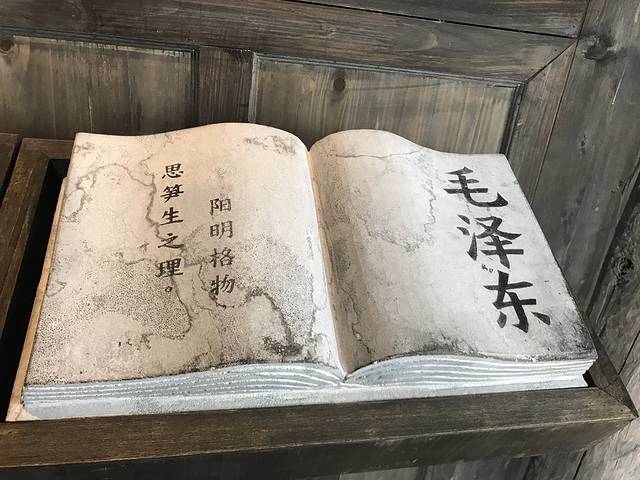 毛泽东
阳明格物
思笋生之理。